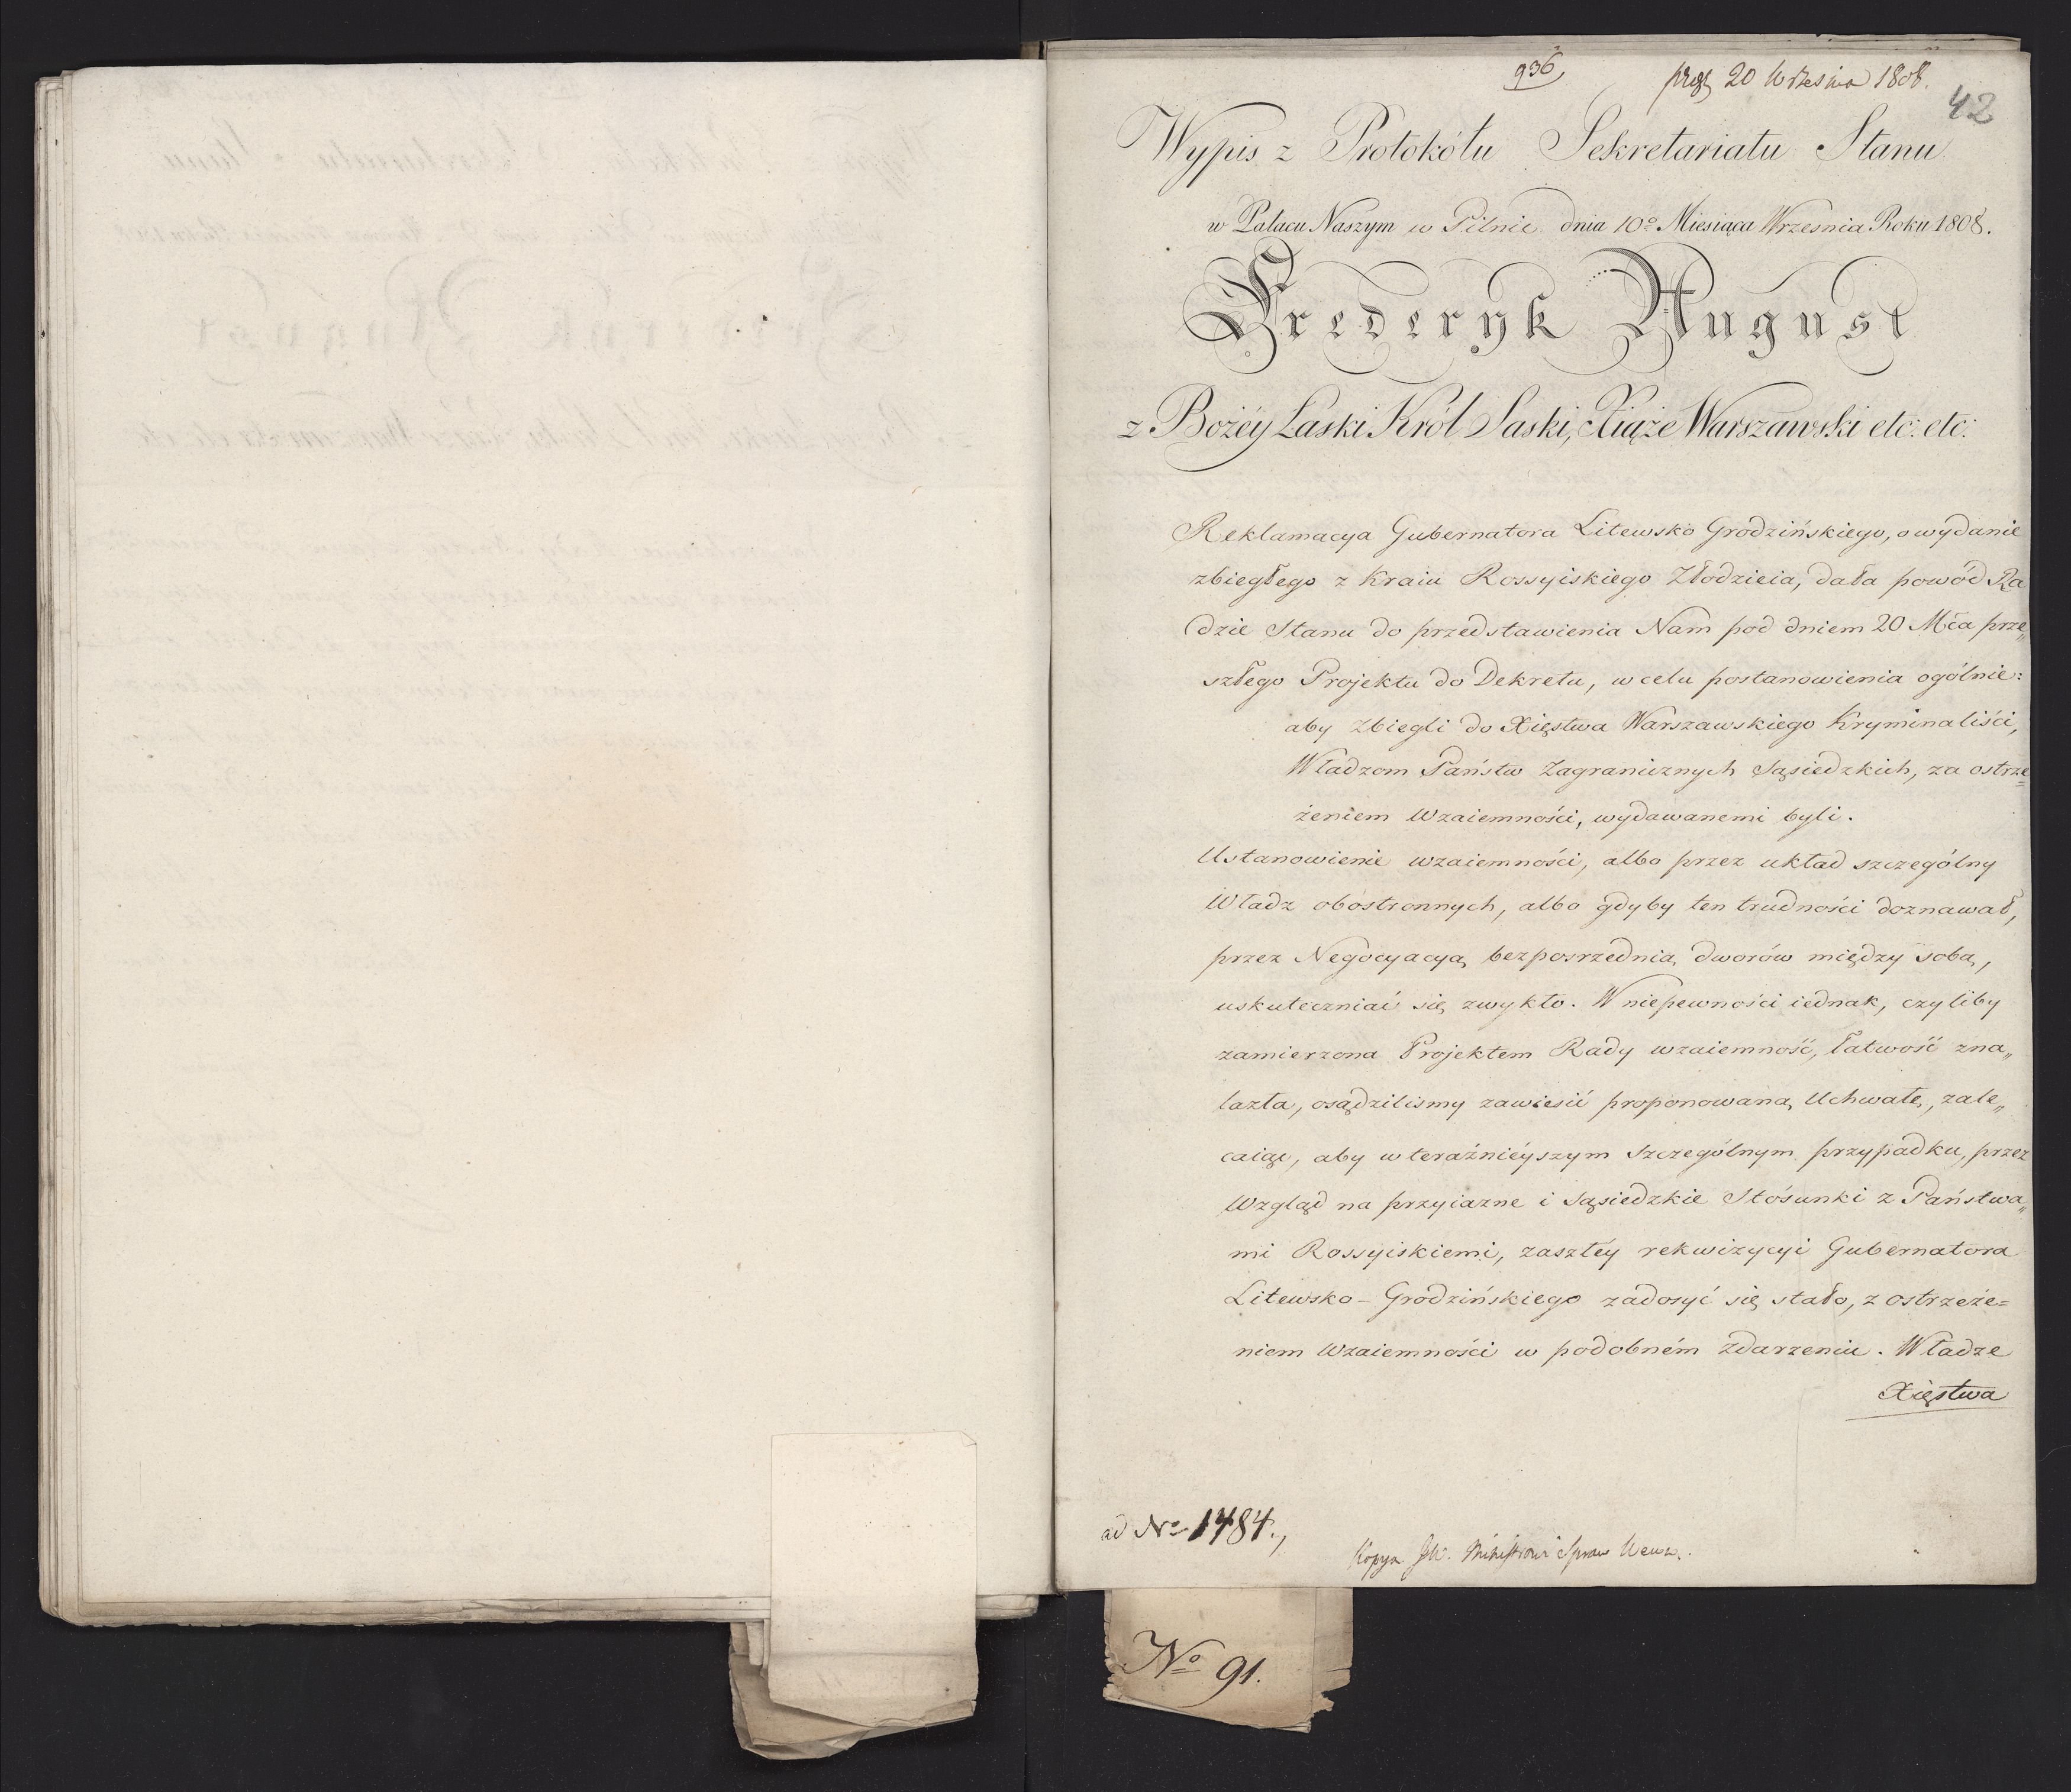 936
20 Września 1808.
42
Wypis z Protokółu Sekretariatu Stanu
w Pałacu Naszym w Pilnie dnia 10º Miesiąca Wrzesnia Roku 1808.
Frederyk August
z Bożéy Łaski Król Saski, Xiąże Warszawski etc: etc:
Reklamacya Gubernatora Litewsko Grodzińskiego, o wydanie
zbiegłego z Kraiu Rossyiskiego Złodzieia, dała powód Ra
dzie Stanu do przedstawienia Nam pod dniem 20 Mca prze„
szłego Projektu do Dekretu, w celu postanowienia ogólnie:
aby zbiegli do Xięstwa Warszawskiego Kryminaliści,
Władzom Państw Zagranicznych Sąsiedzkich, za ostrze=
żeniem wzaiemności, wydawanemi byli.
Ustanowienie wzaiemności, albo przez układ szczególny
Władz obostronnych, albo gdyby ten trudności doznawał,
przez Negocyacyą bezposrzednią dworów między sobą,
uskuteczniać się zwykło. W niepewności iednak, czyliby
zamierzona Projektem Rady wzaiemność, łatwość zna„
lazła, osądzilismy zawiesić proponowaną Uchwałę, zale„
caiąc, aby w teraźnieyszym szczególnym przypadku, przez
wzgląd na przyiazne i Sąsiedzkie Stósunki z Państwa„
mi Rossyiskiemi, zaszłéy rekwizycyi Gubernatora
Litewsko - Grodzińskiego zadosyć się stało, z ostrzeże=
niem wzaiemności w podobném zdarzeniu. Władze
Xięstwa
ad Nº 1484.,
Kopya JW. Ministrowi Spraw Wewn.
Nº 91.